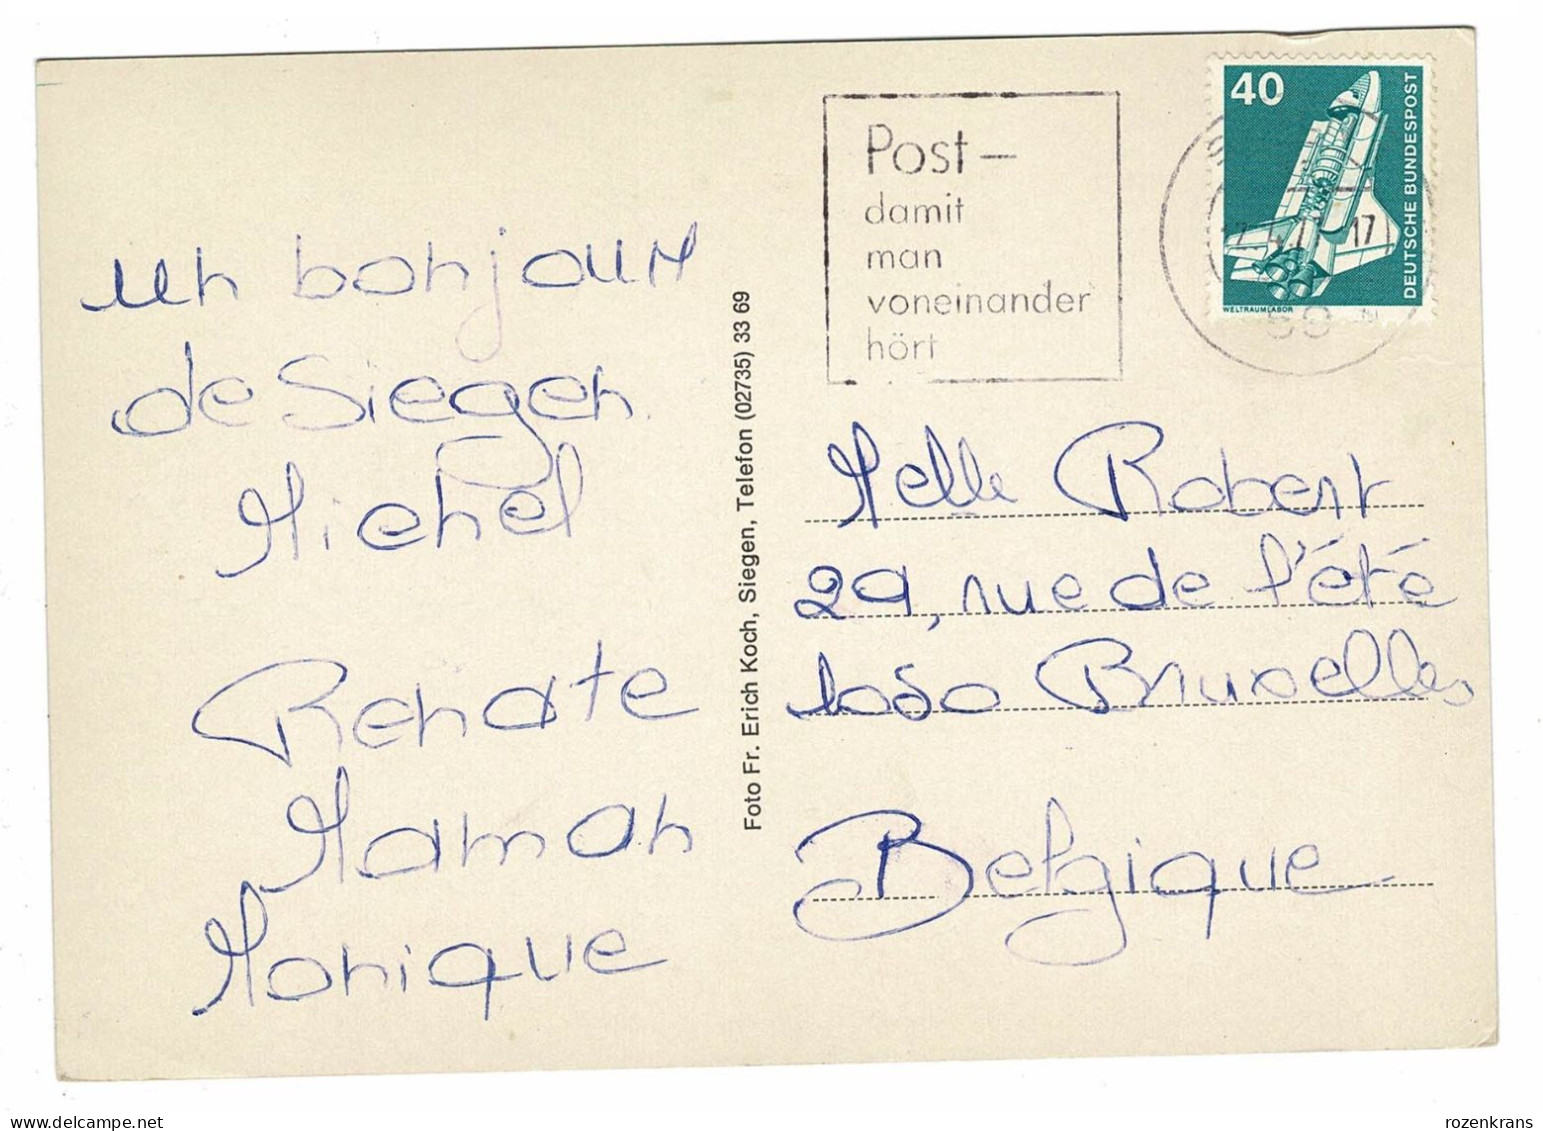 un bonjour
de Siegen.
Michel
Renate
Maman
Monique
Foto Fr. Erich Koch, Siegen, Telefon (02735) 33 69
Post –
damit
man
voneinander
hört
40
DEUTSCHE BUNDESPOST
WELTRAUMLABOR
17
Melle Robert
29, rue de l'été
1050 Bruxelles
Belgique
rozenkrans